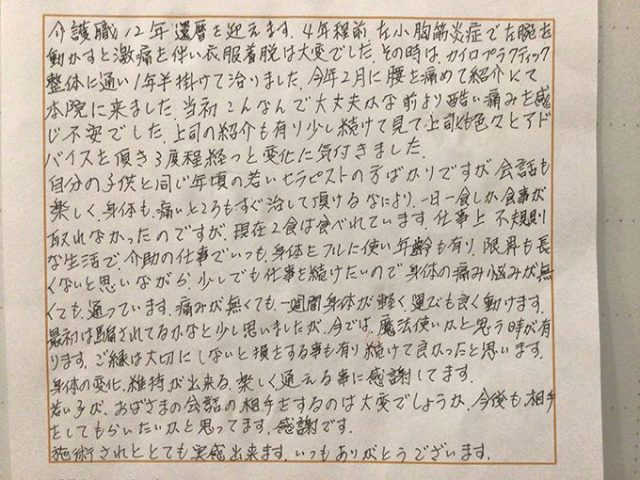 介護職12年還暦を迎えます。4年程前、左小胸筋炎症で左腕を
動かすと激痛を伴い衣服着脱は大変でした。その時は、カイロプラクティック
整体に通い1年半掛けて治りました。今年2月に腰を痛めて紹介にて
本院に来ました。当初こんなんで大丈夫かな前より酷い痛みを感
じ不安でした。上司の紹介も有り少し続けて見て上司も色々とアド
バイスを頂き3度程経つと変化に気付きました。
自分の子供と同じ年頃の若いセラピストの子ばかりですが会話も
楽しく、身体も、痛いところもすぐ治して頂ける。なにより、一日一食しか食事が
取れなかったのですが、現在2食は食べれています。仕事上不規則
な生活で、介助の仕事でいつも、身体をフルに使い年齢も有り、限界も長
くないと思いながら、少しでも仕事を続けたいので身体の痛み悩みが無
くても、通っています。痛みが無くても、一週間身体が軽く、運びも良く動けます。
最初は騙されてるかなと少し思いましたが、今では、魔法使いかと思う時が有
ります。ご縁は大切にしないと損をする事も有り続けて良かったと思います。
身体の変化、維持が出来る、楽しく通える事に感謝してます。
若い子が、おばさまの会話の相手をするのは大変でしょうか、今後も、相手
をしてもらいたいかと思ってます。感謝です。
施術されとても実感出来ます。いつもありがとうございます。